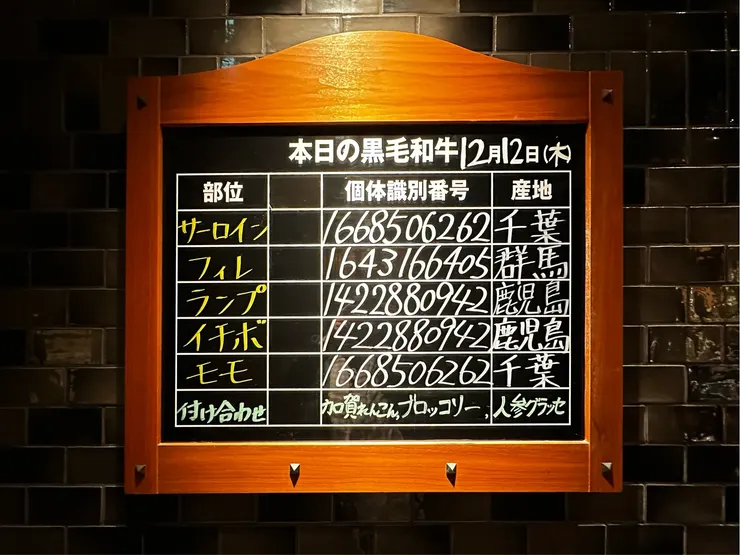 本日の黒毛和牛12月12日(木)
部位 個体識別番号 産地
サーロイン 1668506262 千葉
フィレ 1643166405 群馬
ランプ 1422880942 鹿児島
イチボ 1422880942 鹿児島
モモ 1668506262 千葉
付け合わせ 加賀れんこん,ブロッコリー,人参グラッセ